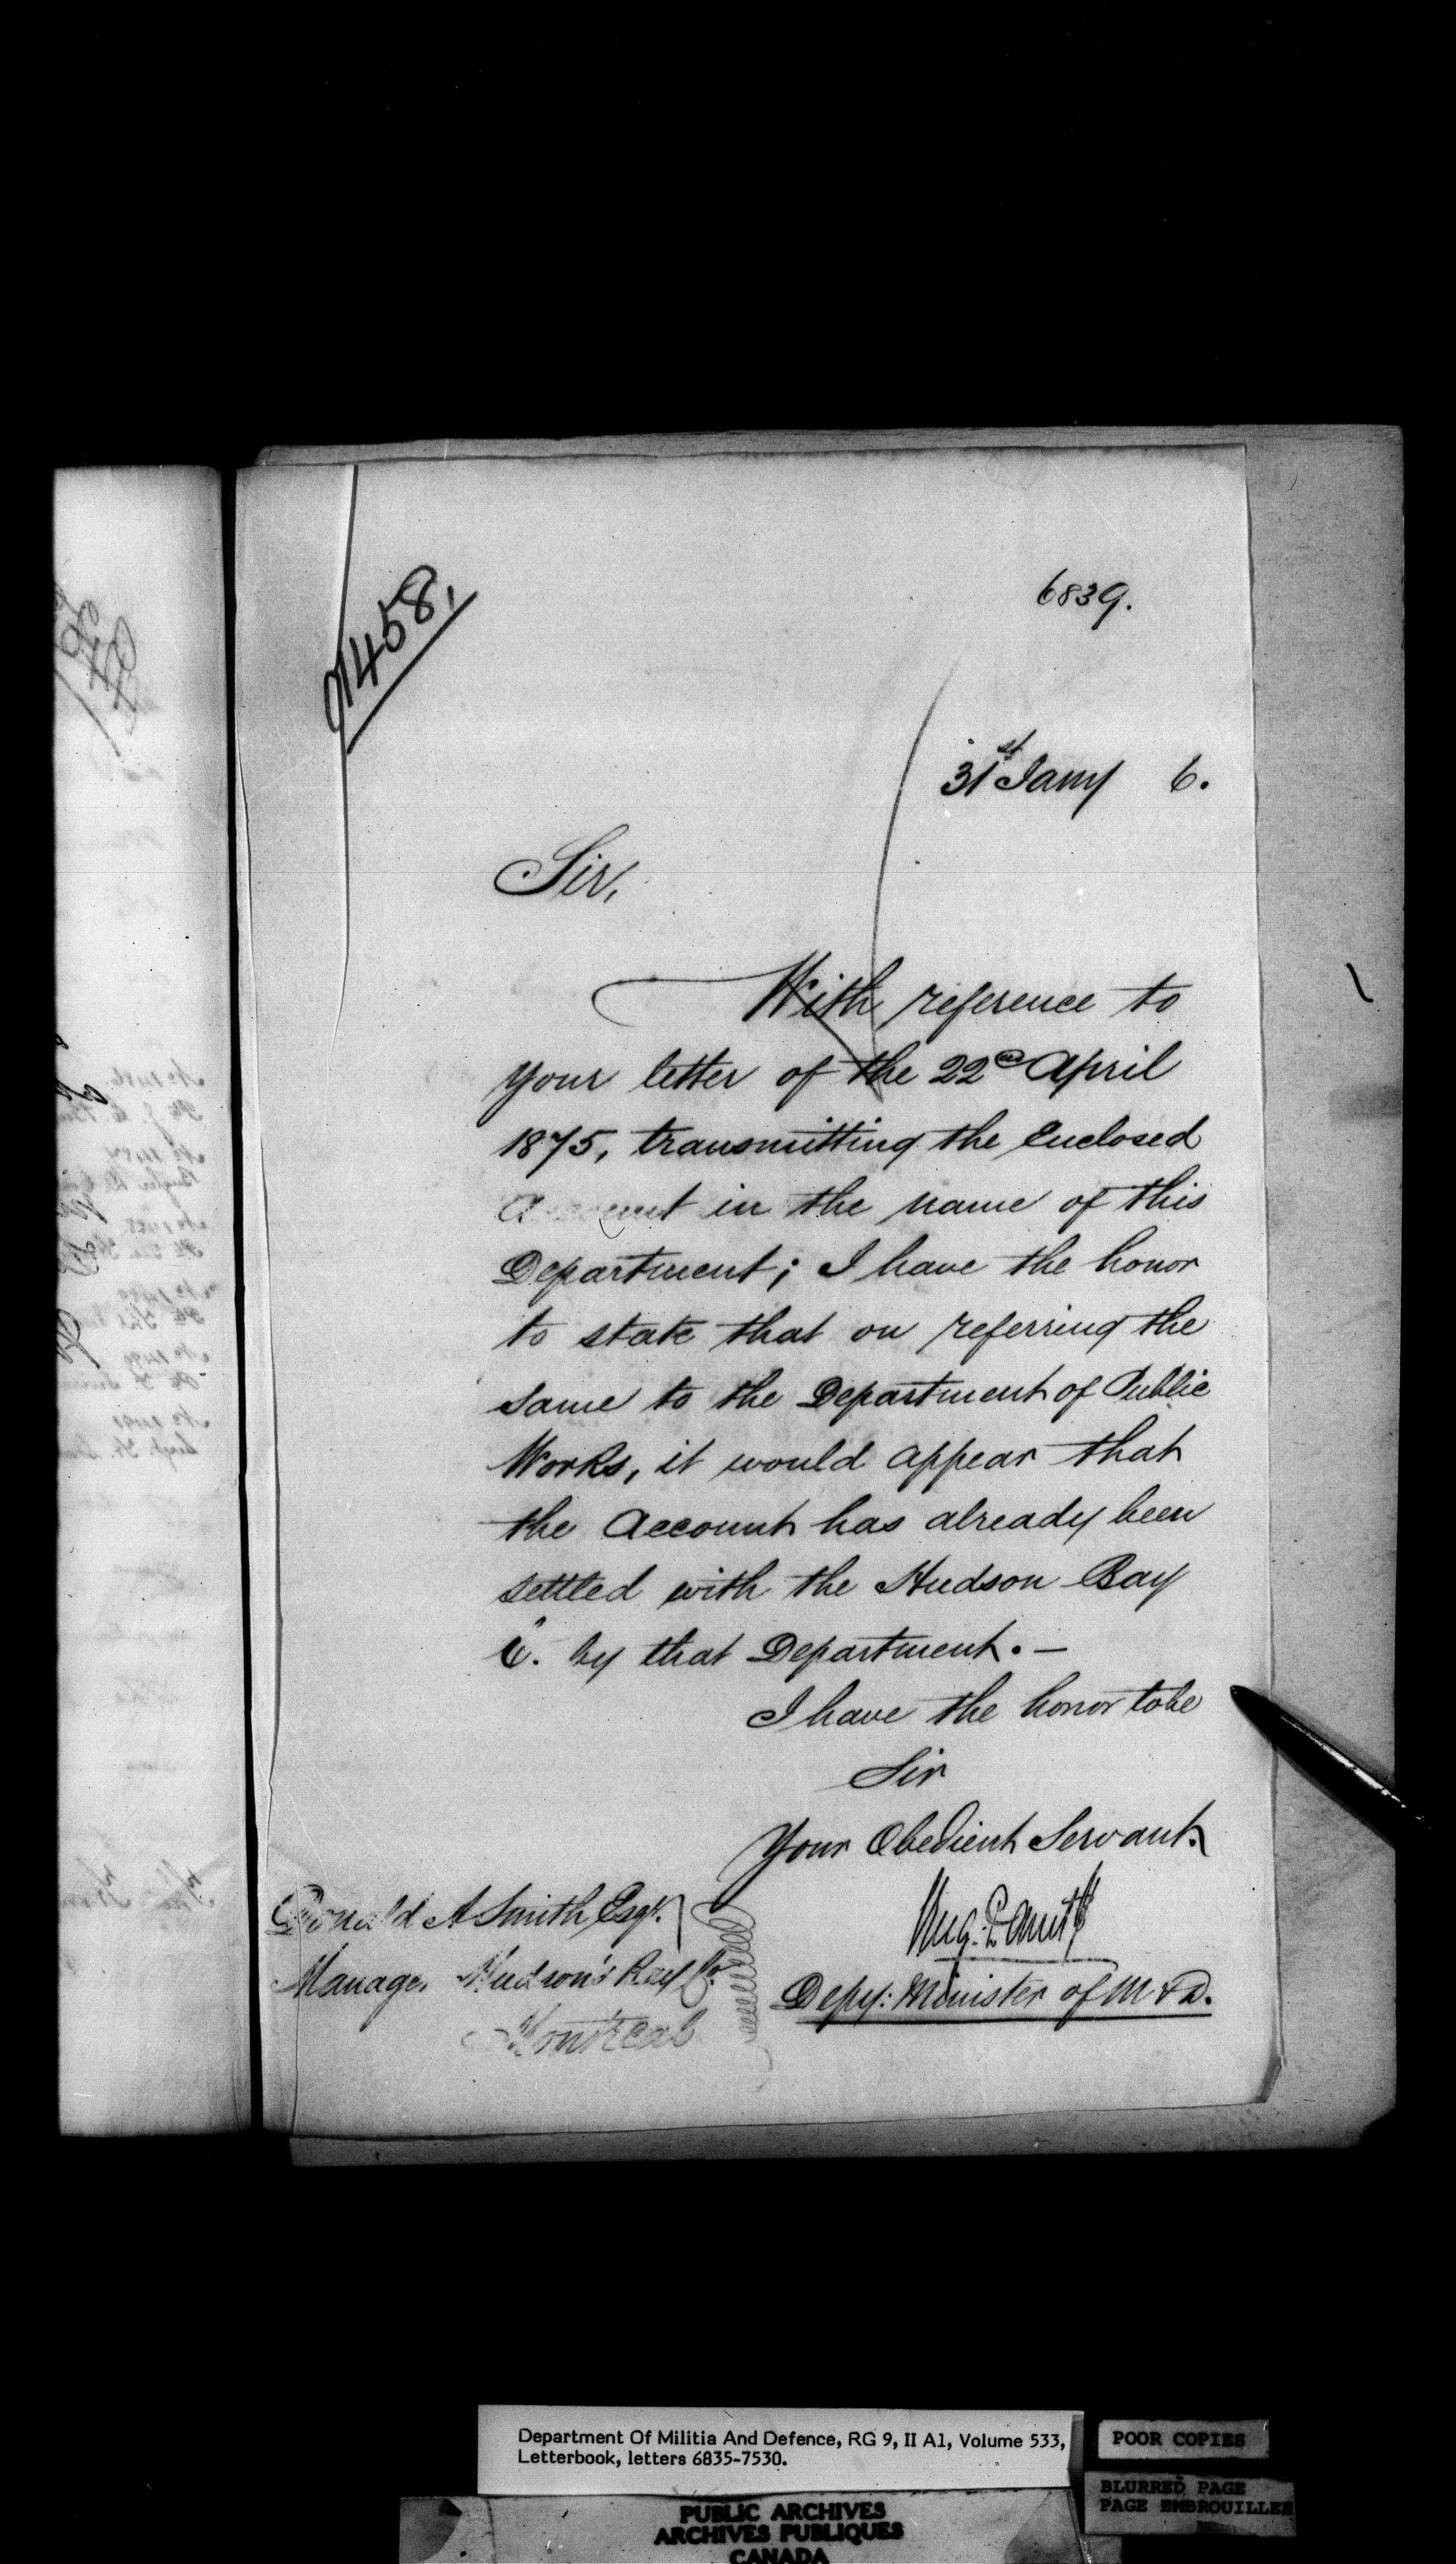 01458.
6839.
31st Jany 6.
Sir,
With reference to
your letter of the 22nd April
1875, transmitting the enclosed
Account in the name of this
Department; I have the honor
to state that on referring the
same to the Department of Public
Works, it would appear that
the Account has already been
settled with the Hudson Bay
Co. by that Department. —
I have the honor to be
Sir
Your Obedient Servant.
Depy: Minister of M & D.
Donald A Smith Esqr.
Manager Hudson's Bay Co.
Montreal
Department Of Militia And Defence, RG 9, II A1, Volume 533,
Letterbook, letters 6835-7530.
POOR COPIES
BLURRED PAGE
PAGE EMBROUILLEE
PUBLIC ARCHIVES
ARCHIVES PUBLIQUES
CANADA